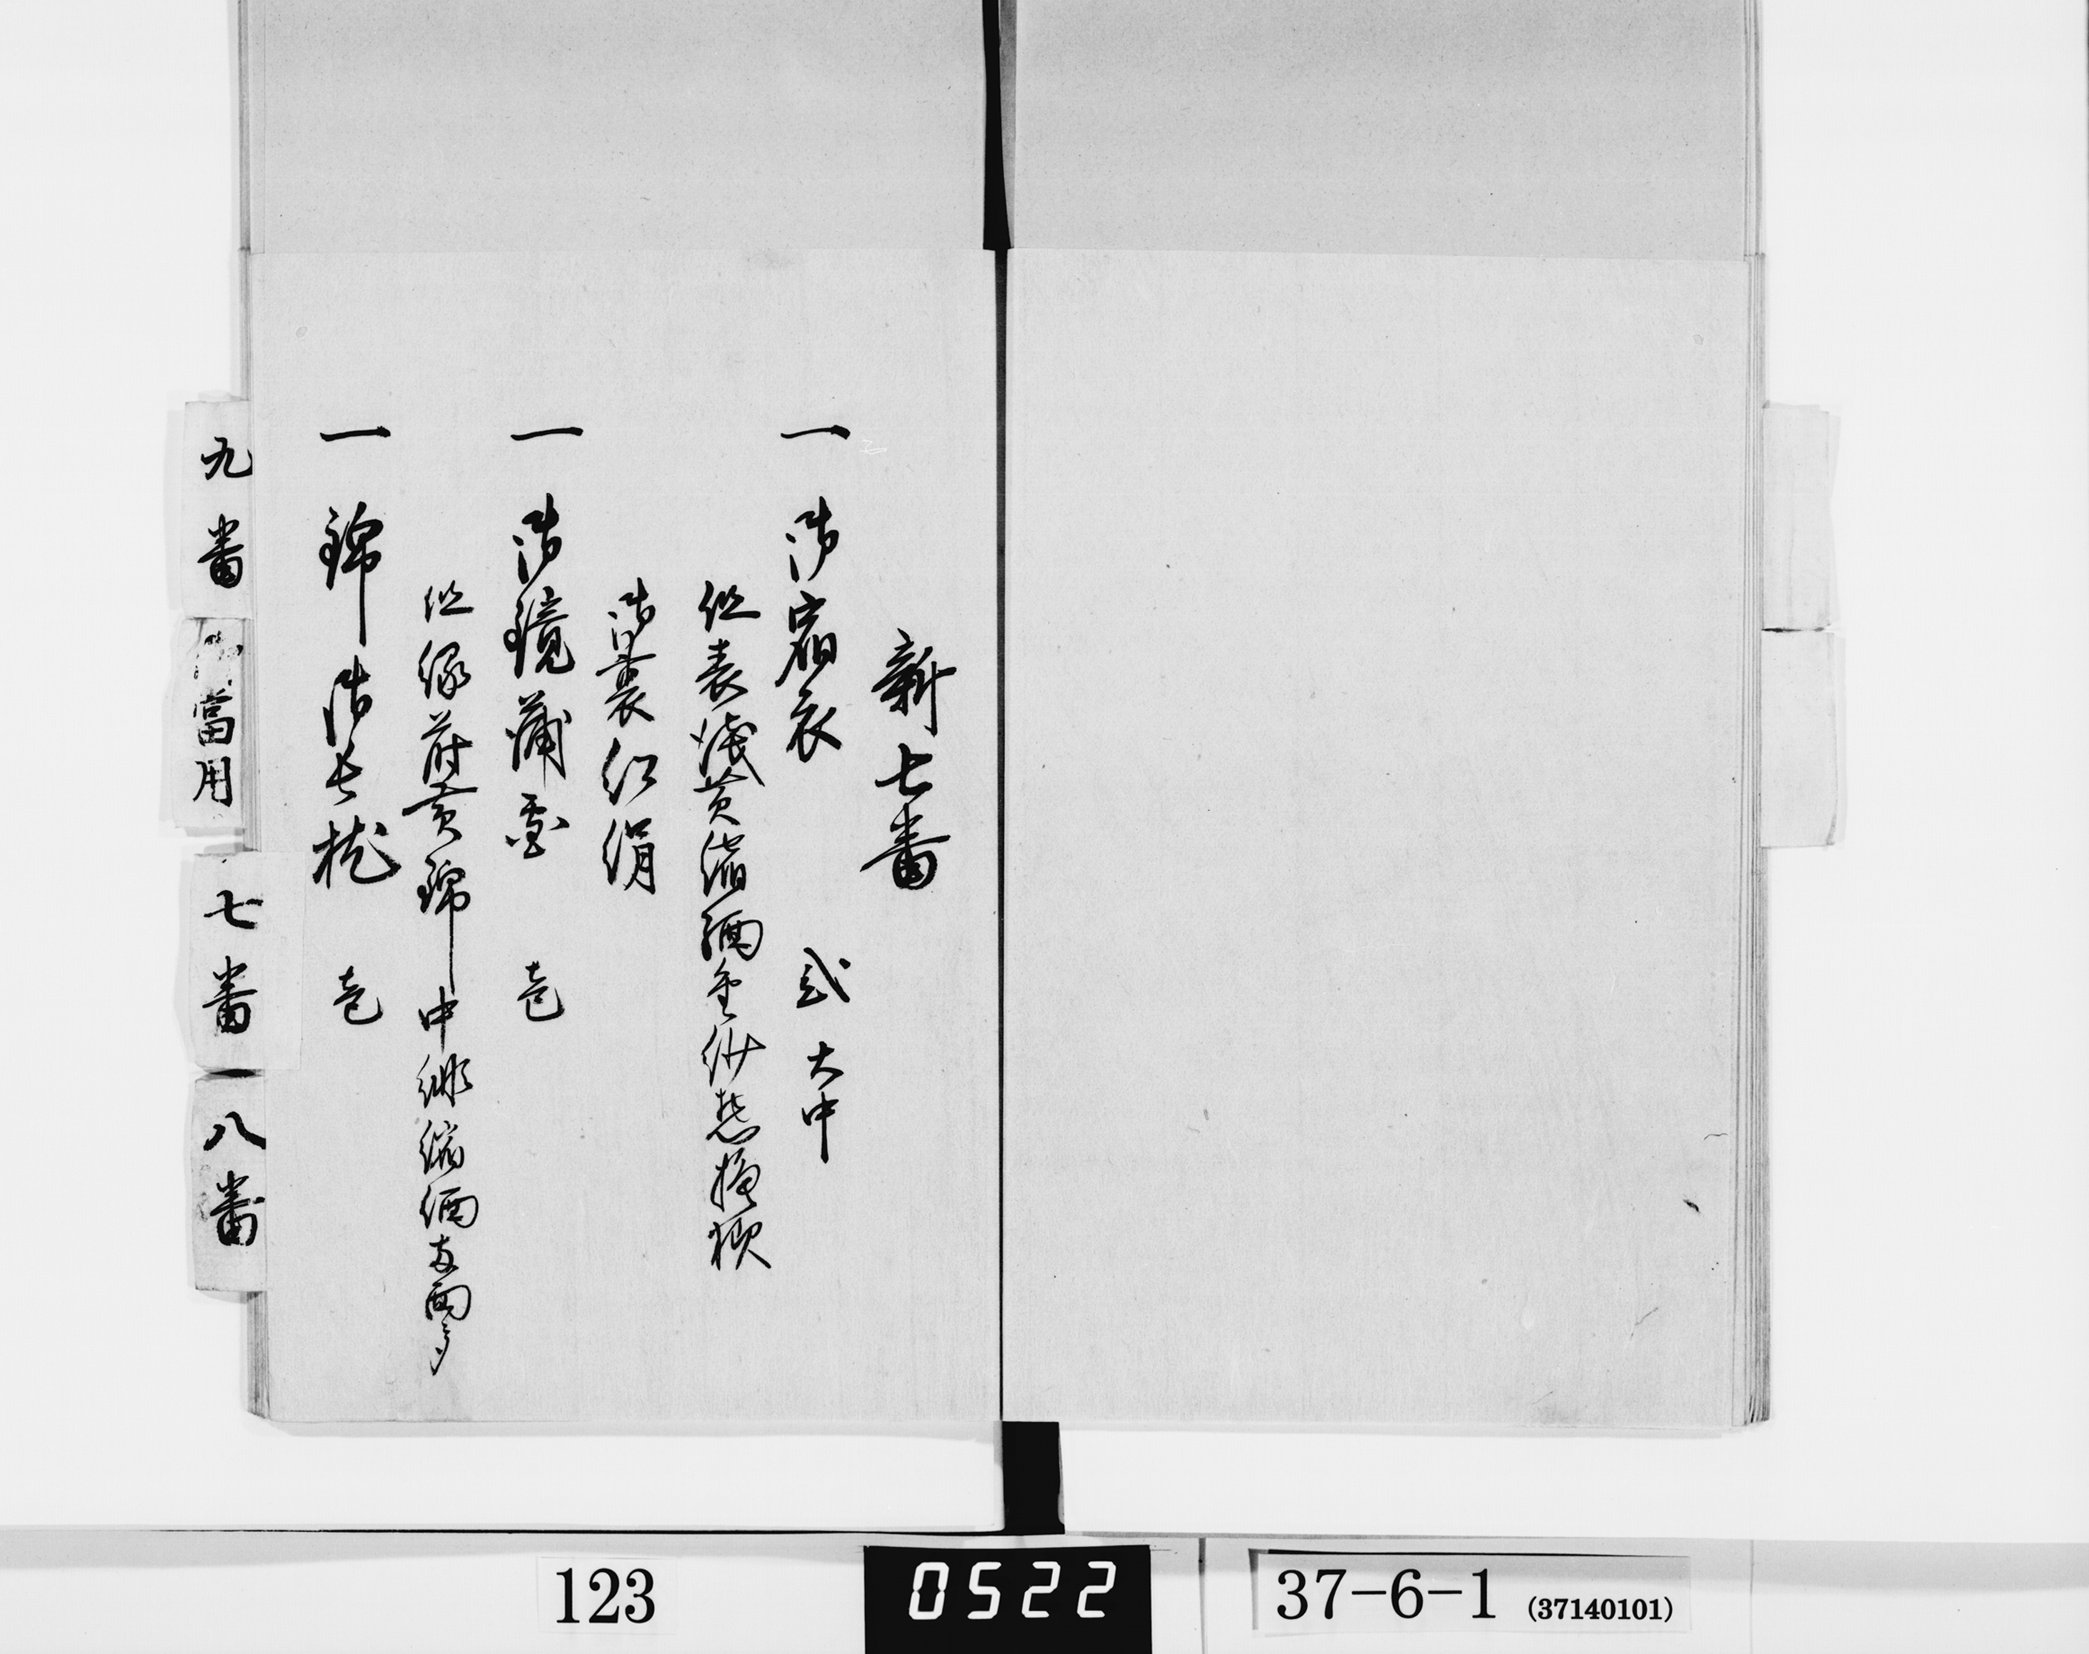 新七番
一 御宿衣 弐 大中
但表浅黄縮緬金紗惣模様
御裏紅絹
一 御鏡蒲団 壱
但縁萌黄錦中緋縮緬両面
一 錦御長枕 壱
九番
當用
七番
八番
123
0522
37-6-1 (37140101)